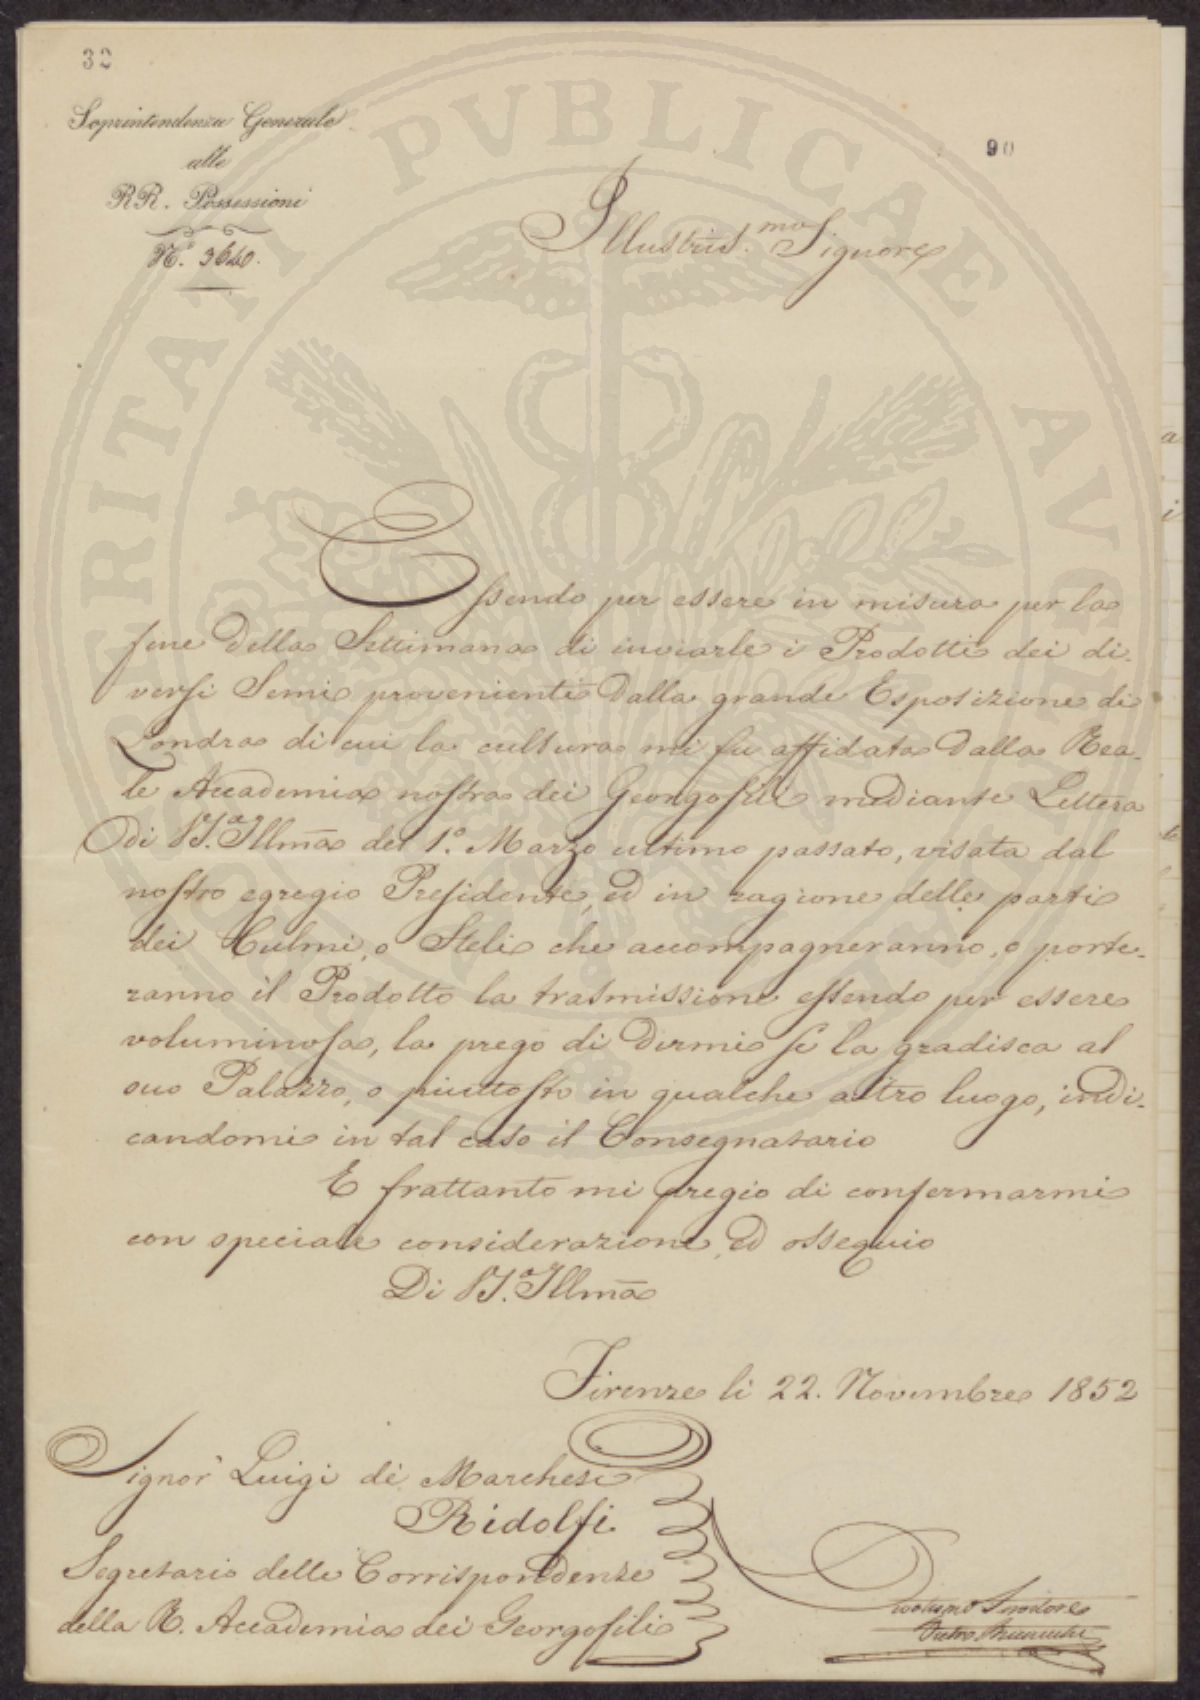 32
Soprintendenza Generale
alle
RR. Possessioni
N.° 3640.
90
Illustris.mo Signore
Essendo per essere in misura per la
fine della Settimana di inviarle i Prodotti dei di-
versi Semi provenienti dalla grande Esposizione di
Londra di cui la cultura mi fu affidata dalla Rea-
le Accademia nostra dei Georgofili mediante Lettera
di V.S. Illma del 1.° Marzo ultimo passato, visata dal
nostro egregio Presidente, ed in ragione delle parti
dei Culmi, o Steli che accompagneranno, o porte-
ranno il Prodotto la trasmissione essendo per essere
voluminosa, la prego di dirmi se la gradisca al
suo Palazzo, o piuttosto in qualche altro luogo, indi-
candomi in tal caso il Consegnatario
E frattanto mi pregio di confermarmi
con speciale considerazione, ed ossequio
Di V.S. Illma
Firenze li 22. Novembre 1852
Signor Luigi de' Marchesi
Ridolfi
Segretario delle Corrispondenze
della R. Accademia dei Georgofili
Devotismo Servitore
Pietro
PROSPERITATI PVBLICAE AVGENDAE